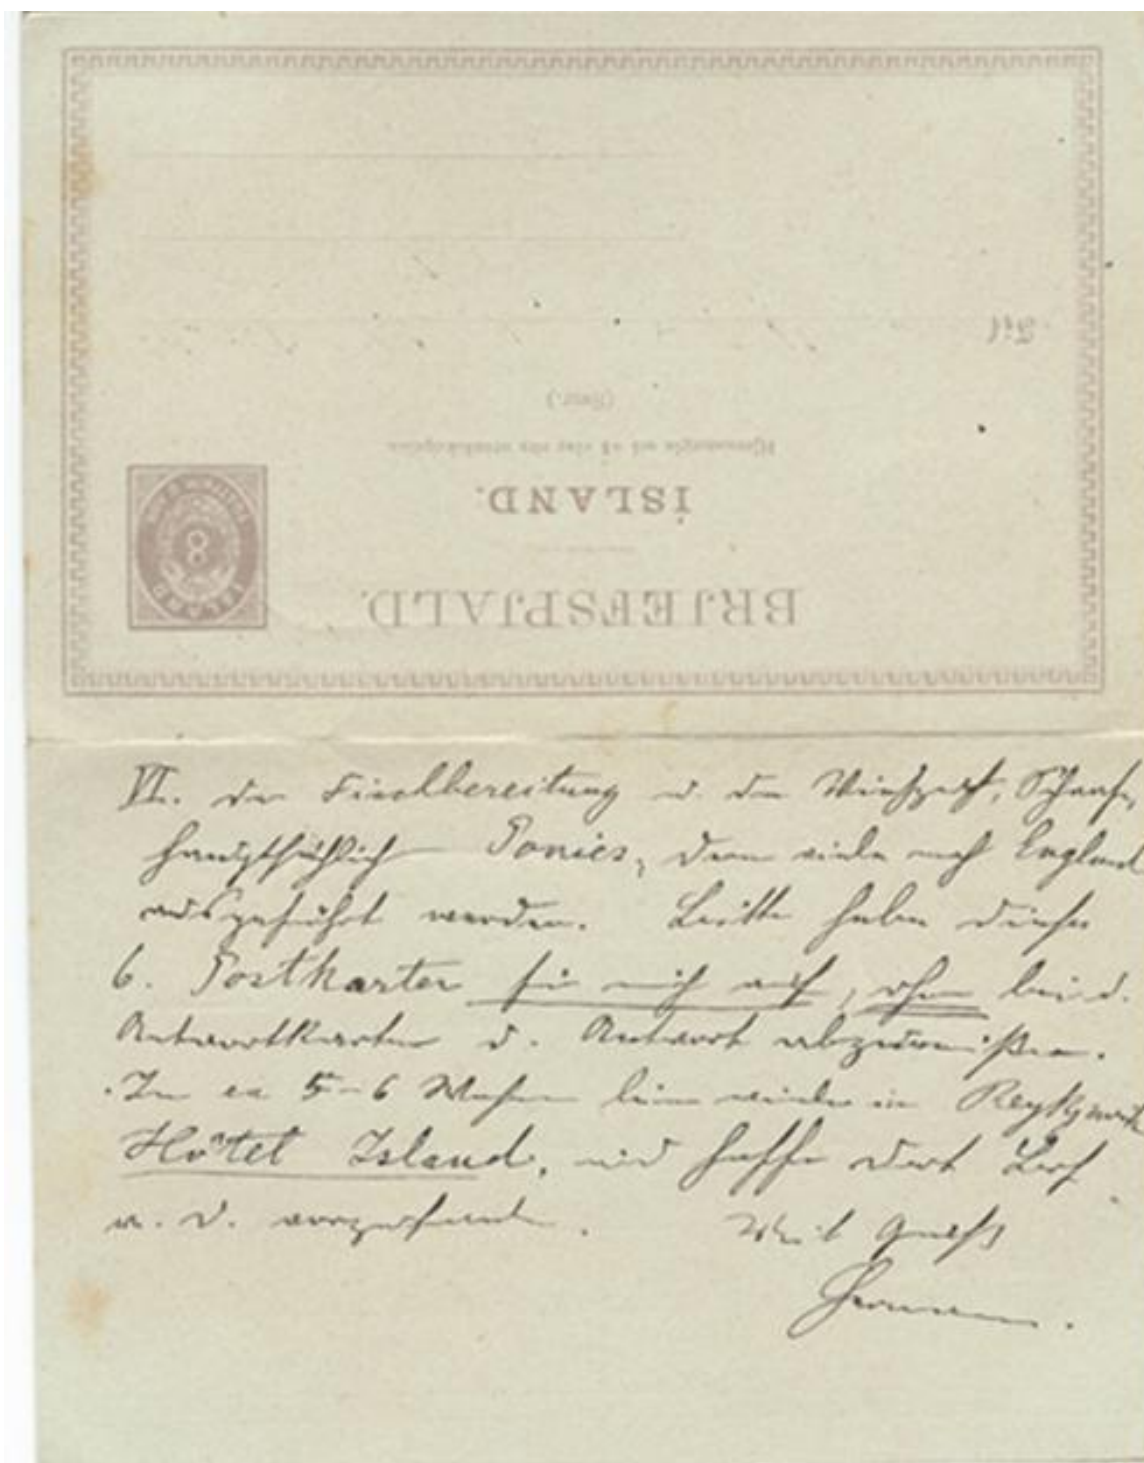 Til
(Svar.)
ÍSLAND.
BRJEFSPJALD.
8
ISLAND
VI. der Fischbereitung u. der Viehzucht, Schaafe,
hauptsächlich Ponies, deren viele nach England
ausgeführt werden. Bitte heben diese
6. Postkarten für mich auf, ohne bei d.
Antwortkarten d. Antwort abzureißen.
In ca 5-6 Wochen bin wieder in Reykjavik
Hôtel Island, und hoffe dort Brf
v. D. vorzufinden.
Mit Gruß
Hermann.